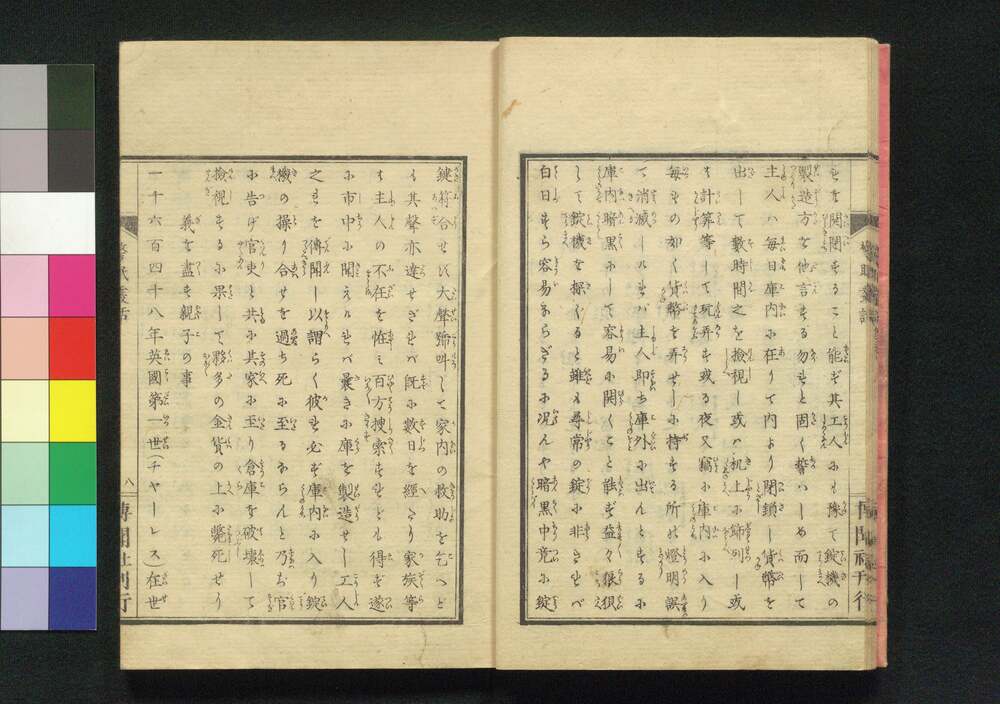 を開閉すること能ず其工人にも豫て錠機の
製造方を他言する勿れと固く誓ハしめ而して
主人ハ毎日庫内に在りて内より閉鎖し貨幣を
出して數時間之を撿視し或ハ机上に飾列し或
は計算等して玩弄す或る夜又竊に庫内に入り
毎もの如く貨幣を弄せしに持する所の燈明誤
て消滅しけれバ主人即ち庫外に出んとするに
庫内暗黒にして容易に開くこと能ず益々狼狽
して錠機を探ぐると雖も尋常の錠に非ざれバ
白日すら容易ならざるに况んや暗黒中竟に錠
鍵符合せず大聲蹄叫して家内の救助を乞へど
も其聲亦達せざれバ既に數日を經たり家族等
は主人の不在を怪ミ百方搜索すれども得ず遂
に市中に聞えけれバ曩きに庫を製造せし工人
之れを傳聞し以謂らく彼れ必ず庫内に入り錠
機の操り合せを過ち死に至るならんと乃ち官
に告げ官吏と共に其家に至り倉庫を破壊して
撿視するに果して夥多の金貨の上に斃死せり
義を盡す親子の事
一千六百四十八年英國第一世(チヤーレス)在世
八